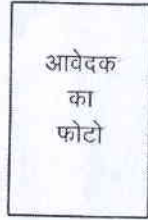 आवेदक
का
फोटो